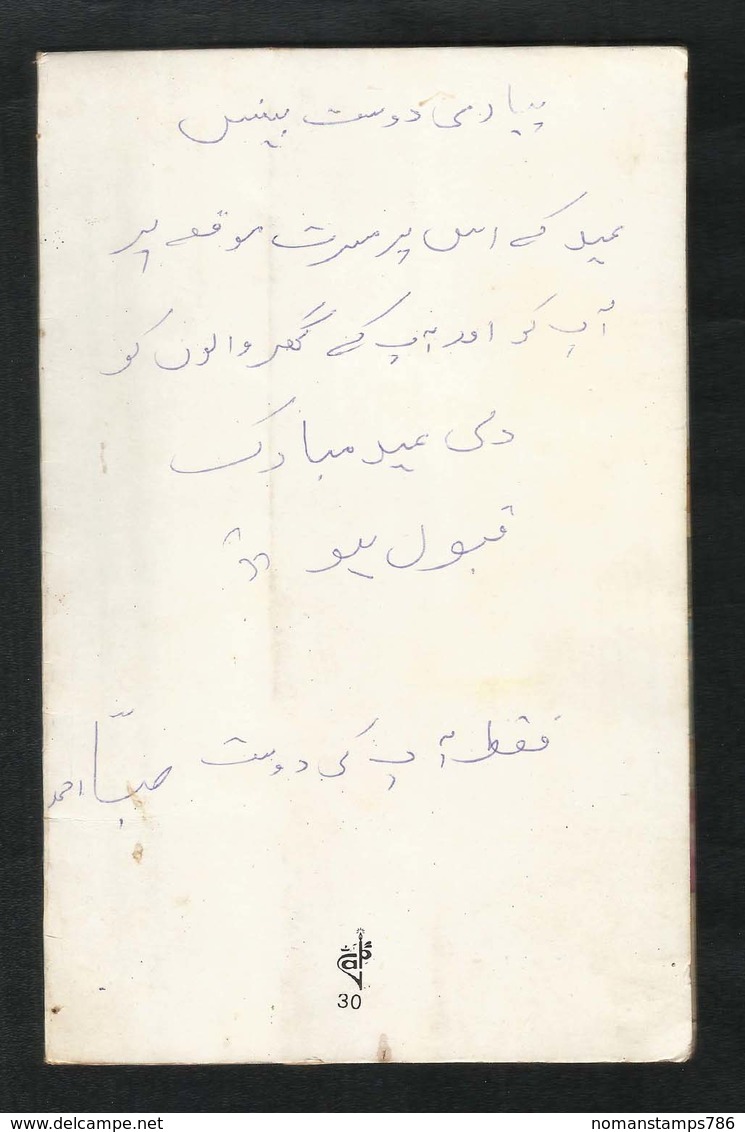 پیاری دوست
عید کے اس پر مسرت موقعے پر
آپ کو اور آپ کے گھر والوں کو
دلی عید مبارک
قبول ہو
فقط آپ کی دوست صبا احمد
ap
30
nomanstamps786